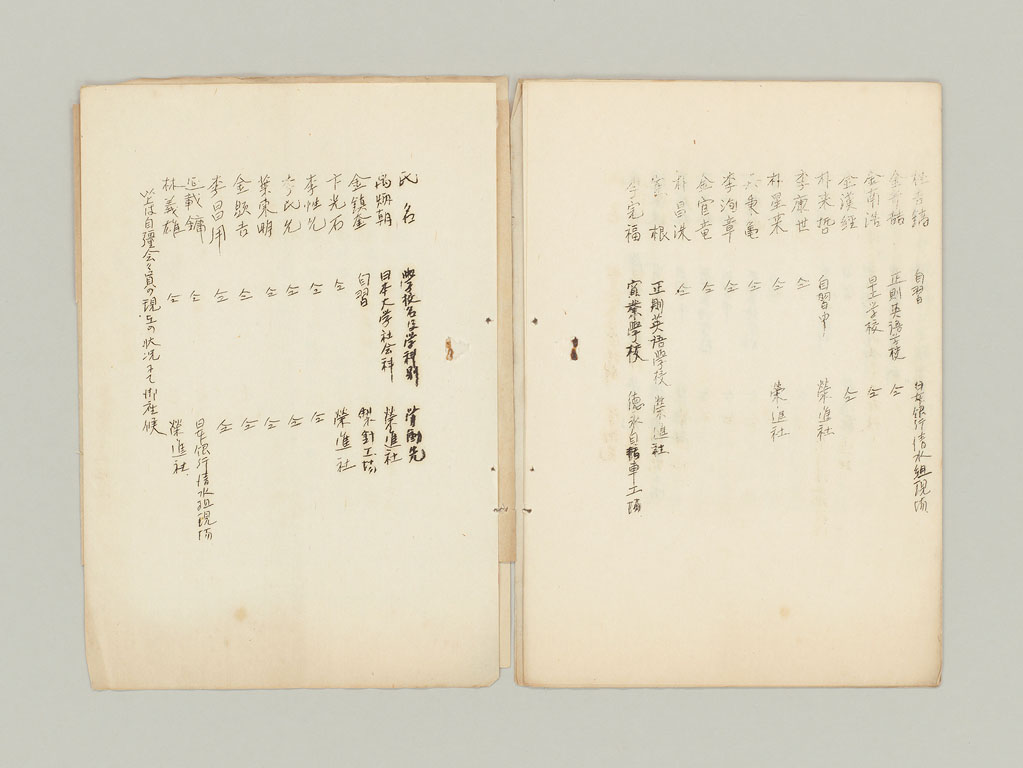 自習 日本銀行清水組現場
正則英語学校 仝
金南浩 早工学校 仝
金漢経 仝
朴来哲 自習中 榮進社
李康世 仝
朴星業 仝 榮進社
仝
李洵章 仝
金官童 仝
朴昌洙 仝
根 正則英語学校 榮進社
李完福 實業學校 德永自轉車工場
氏名 學校名及学科別 労働先
禹炳朝 日本大学社会科 榮進社
金鎮奎 自習 製釘工場
卞光石 仝 榮進社
李性允 仝 仝
李氏允 仝 仝
葉東明 仝 仝
金顕吉 仝 仝
李昌用 仝 仝
載鏞 仝 日本銀行清水組現場
林義雄 仝 榮進社
以上は自彊会々員の現在の状況にて御座候